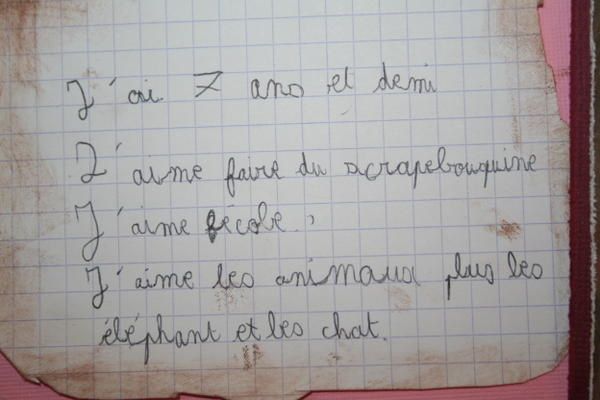 J'ai 7 ans et demi
J'aime faire du scrapebouquine
J'aime l'école.
J'aime les animaux plus les
éléphant et les chat.